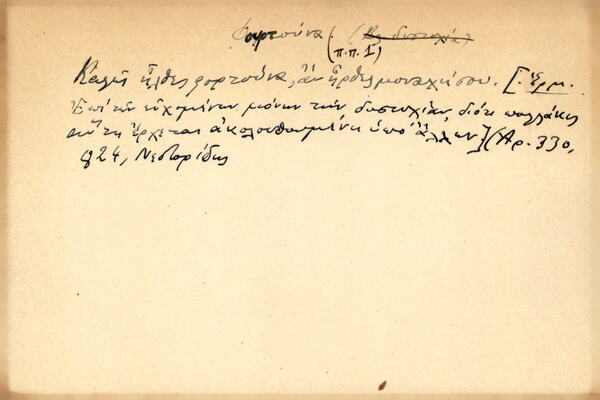 Φορτούνα (βλ. δυστυχία)
(π.π. 1)
Καλῶς ἦλθες φορτούνα, ἂν ἦρθες μοναχή σου. [Ἑρμ.
Ἐπὶ τῶν εὐχομένων μόνην τὴν δυστυχίαν, διότι πολλάκις
αὕτη ἔρχεται ἀκολουθουμένη ὑπὸ ἄλλων] (Ἀρ. 330,
924, Νεστορίδης